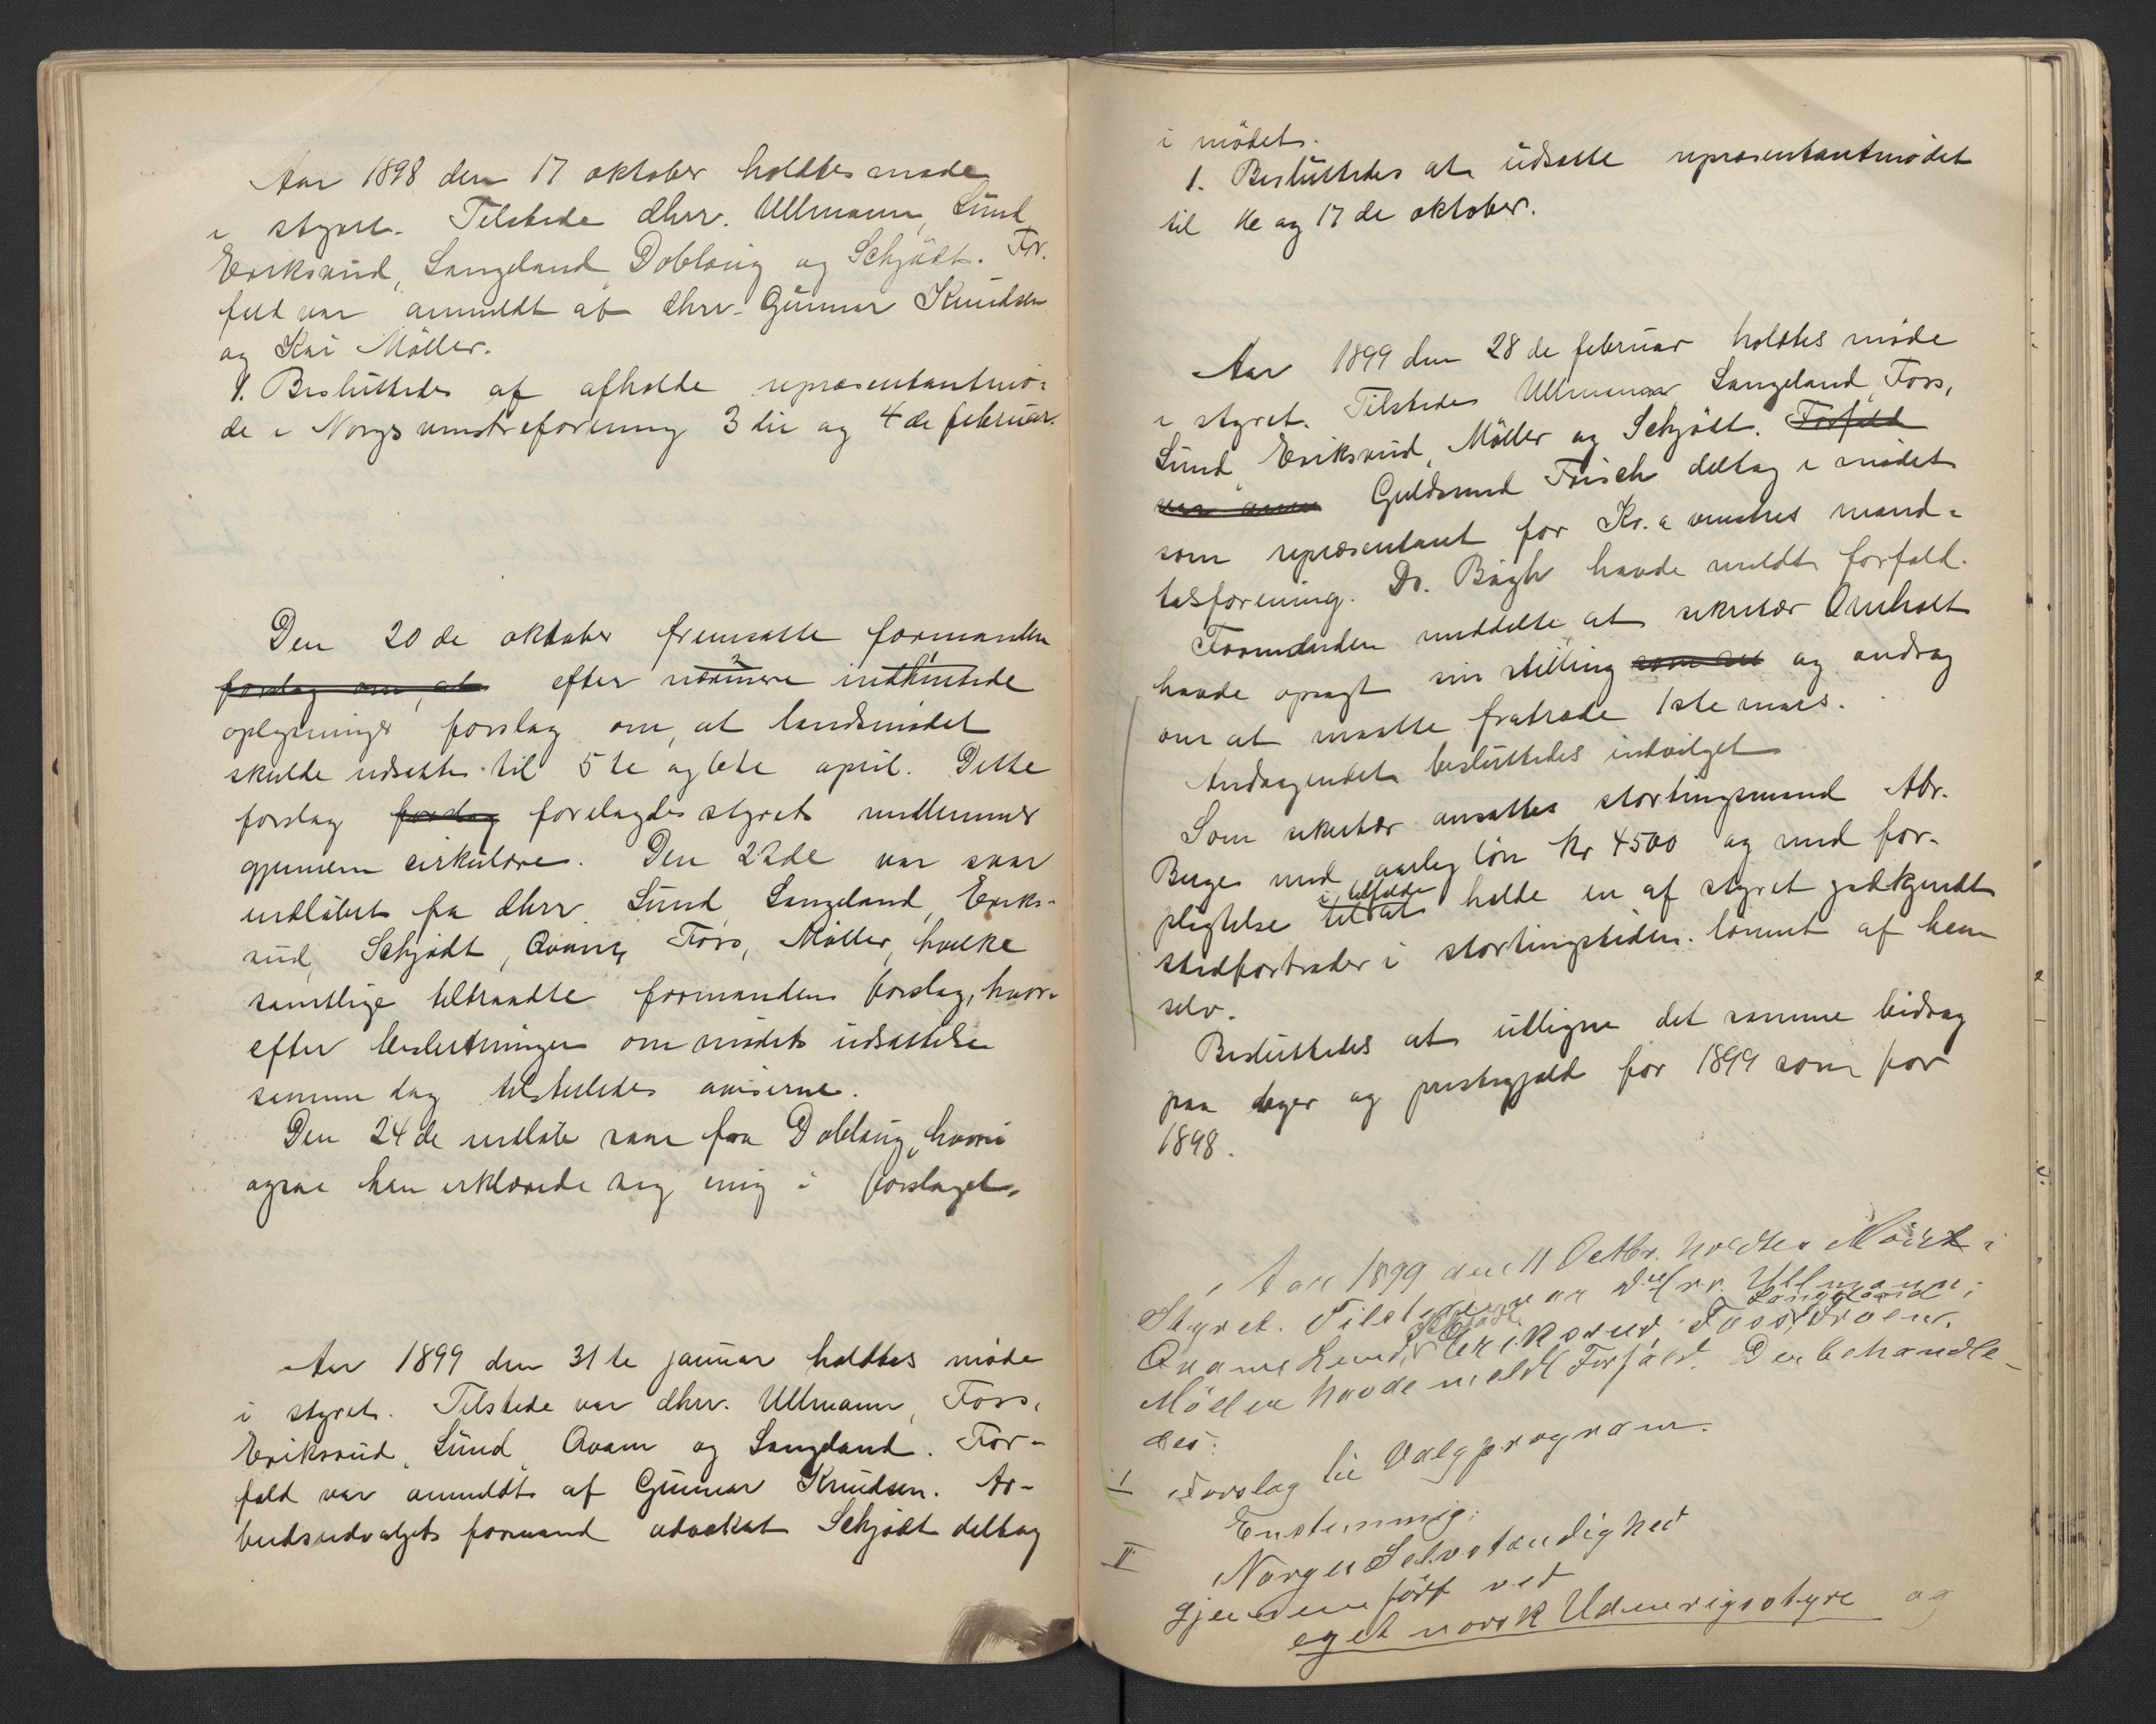 Aar 1898 den 17 oktober holdtes møde
i styret. Tilstede dhrr. Ullmann, Lund
Eriksrud, Langeland, Doblaug og Schjødt. For-
fald var anmeldt af dhrr. Gunnar Knudsen
og Kai Møller.
1. Besluttedes af afholde repræsentantmø-
de i Norges venstreforening 3die og 4de februar.
Den 20de oktober fremsatte formanden
forslag om, at efter nærmere indhentede
oplysninger forslag om, at landsmødet
skulde udsættes til 5te og 6te april. Dette
forslag forslag forelagdes styrets medlemmer
gjennem cirkulære. Den 22de var svar
indløbet fra dhrr. Lund, Langeland, Eriks-
rud, Schjødt, Qvam, Foss, Møller, hvilke
samtlige tiltraadte formandens forslag, hvor-
efter beslutningen om mødets udsættelse
samme dag tilstilledes aviserne.
Den 24de indløb svar fra Doblaug, hvori
ogsaa han erklærede sig enig i forslaget.
Aar 1899 den 31te januar holdtes møde
i styret. Tilstede var dhrr. Ullmann, Foss,
Eriksrud, Lund, Qvam og Langeland. For-
fald var anmeldt af Gunnar Knudsen. Ar-
beidsudvalgets formand advokat Schjødt deltog
i mødet.
1. Besluttedes at udsætte repræsentantmødet
til 16de og 17de oktober.
Aar 1899 den 28de februar holdtes møde
i styret. Tilstede Ullmann, Langeland, Foss,
Lund, Eriksrud, Møller og Schjødt. Forfald
var anm Guldsmed Frisch deltog i mødet
som repræsentant for Kr.a venstres mand-
talsforening. Dr. Bügh havde meldt forfald.
Formanden meddelte, at sekretær Omholt
havde opsagt sin stilling og androg
om at maatte fratræde 1ste mars.
Andragendet besluttedes indvilget
Som sekretær ansattes stortingsmand Abr.
Berge med aarlig løn kr 4500 og med for-
pligtelse til at i tilfælde holde en af styret godkjendt
stedfortræder i stortingstiden lønnet af ham
selv.
Besluttedes at udligne det samme bidrag
paa byer og præstegjæld for 1899 som for
1898.
Aar 1899 den 11 Octbr. holdtes Møde i
Styret. Tilstede var dHrr. Ullmann,
Qvam, Lund, Schjødt, Eriksrud, Foss, Langeland,
Møller havde meldt Forfald. Der behandle-
des:
I Forslag til Valgprogram.
Enstemmig:
II Norges Selvstændighed
gjennemført ved
eget norsk Udenrigsstyre og